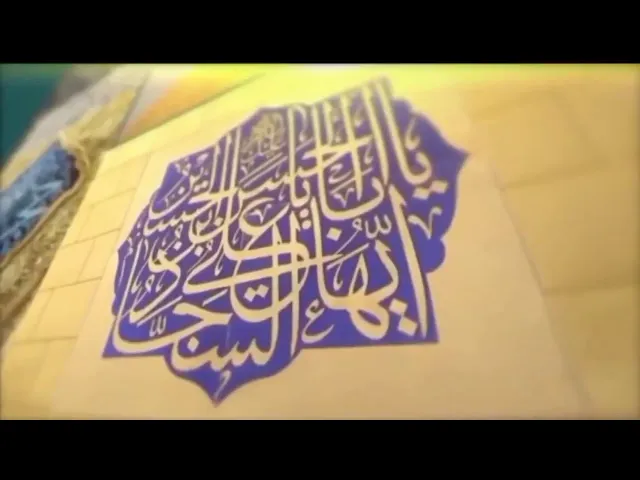 يا ابا الحسن
يا علي بن الحسين
ايّها السجّاد